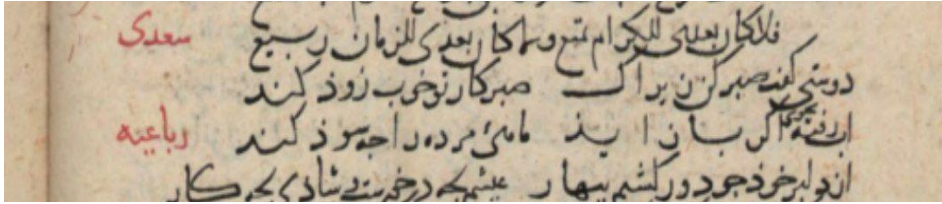 فلا كان بعدي للكرام تمتع ولا كان بعدي للزمان ربيع سعدی
دوستی گفت صبر کن زیراک صبر کار تو خوب زوذ کند
اب رفته بجوی اکر باز ایذ ماهئ مرده را چه سوذ کند رباعیه
از دلبر خوذ جو دور کشتم بهار عیشم بچه در خور ست شادی بچه کار